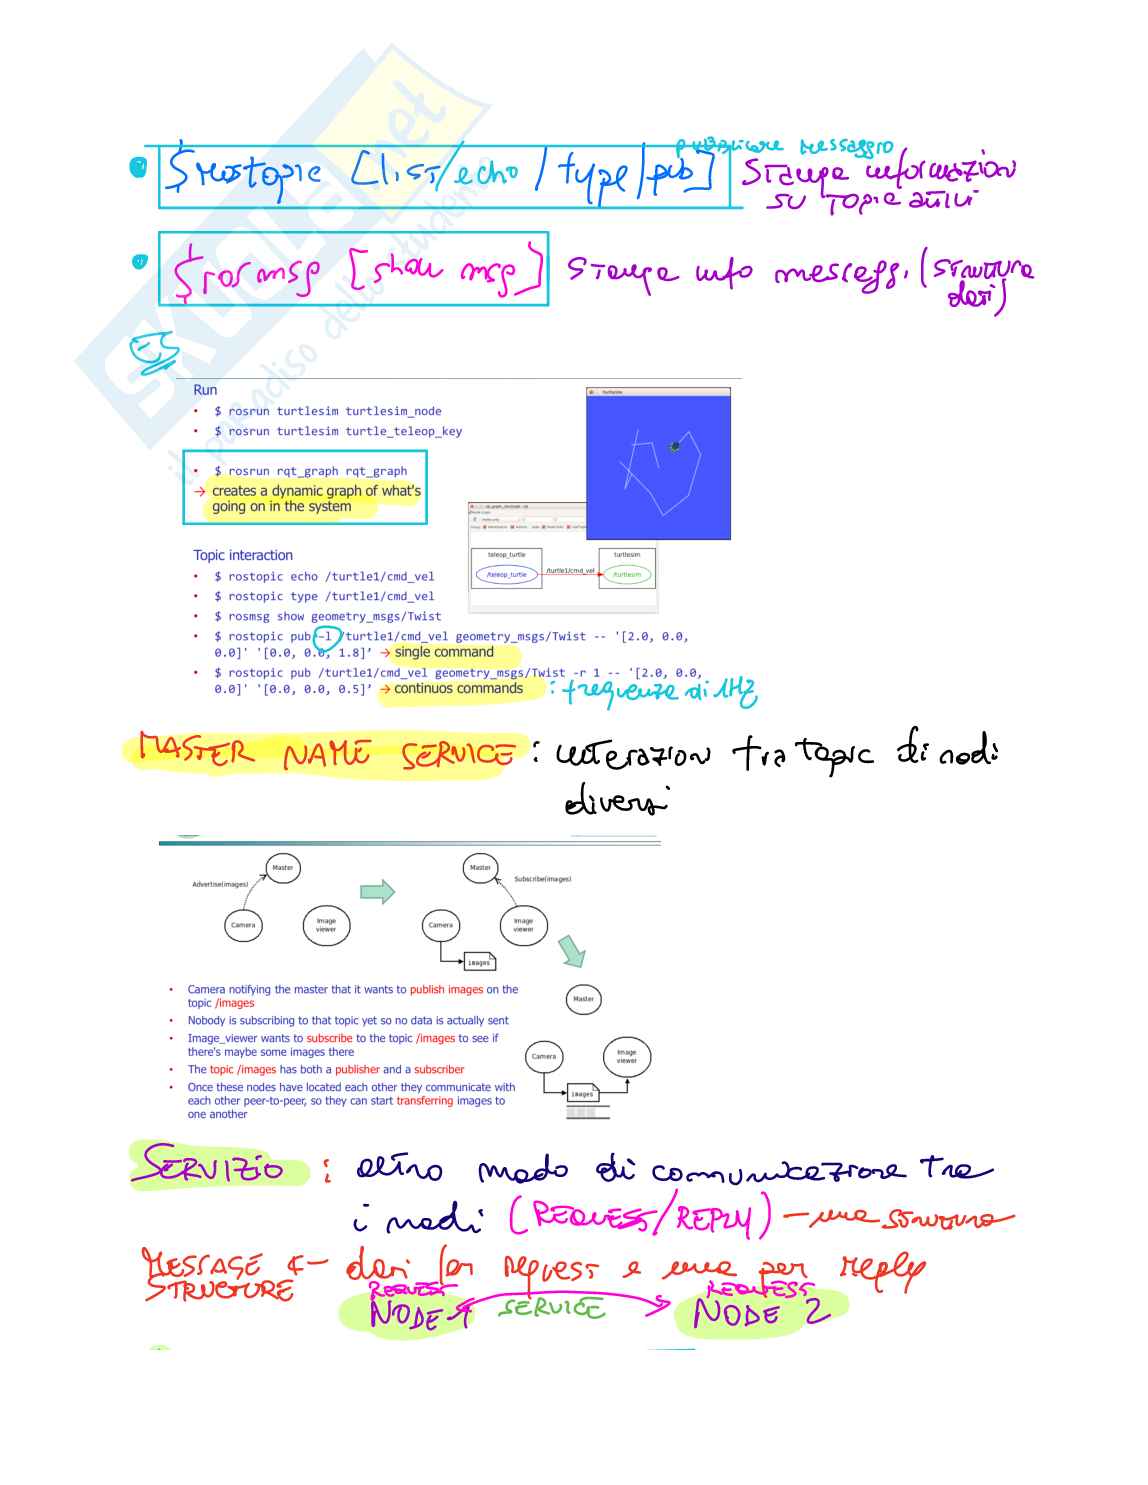 pubblicare messaggio
$rostopic [list/echo/type/pub] stampa informazioni
su topic attivi
$rosmsg [show msg] stampa info messagg. (struttura
dati)
ES
Run
• $ rosrun turtlesim turtlesim_node
• $ rosrun turtlesim turtle_teleop_key
• $ rosrun rqt_graph rqt_graph
→ creates a dynamic graph of what's
going on in the system
turtlesim
teleop_turtle
turtlesim
/teleop_turtle
/turtle1/cmd_vel
/turtlesim
Topic interaction
• $ rostopic echo /turtle1/cmd_vel
• $ rostopic type /turtle1/cmd_vel
• $ rosmsg show geometry_msgs/Twist
• $ rostopic pub -l /turtle1/cmd_vel geometry_msgs/Twist -- '[2.0, 0.0,
0.0]' '[0.0, 0.0, 1.8]' → single command
• $ rostopic pub /turtle1/cmd_vel geometry_msgs/Twist -r 1 -- '[2.0, 0.0,
0.0]' '[0.0, 0.0, 0.5]' → continuos commands : frequenza di 1HZ
MASTER NAME SERVICE : interazioni tra topic di nodi
diversi
Master
Advertise(images)
Camera
Image
viewer
Master
Subscribe(images)
Camera
Image
viewer
images
• Camera notifying the master that it wants to publish images on the
topic /images
• Nobody is subscribing to that topic yet so no data is actually sent
• Image_viewer wants to subscribe to the topic /images to see if
there's maybe some images there
• The topic /images has both a publisher and a subscriber
• Once these nodes have located each other they communicate with
each other peer-to-peer, so they can start transferring images to
one another
Master
Camera
Image
viewer
images
SERVIZIO : altro modo di comunicazione tra
i nodi (REQUEST/REPLY) – una struttura
MESSAGE ← dati per request e una per reply
STRUCTURE
REQUEST
REQUEST
NODE 1 SERVICE NODE 2
SKUOLA.net
il paradiso dello studente